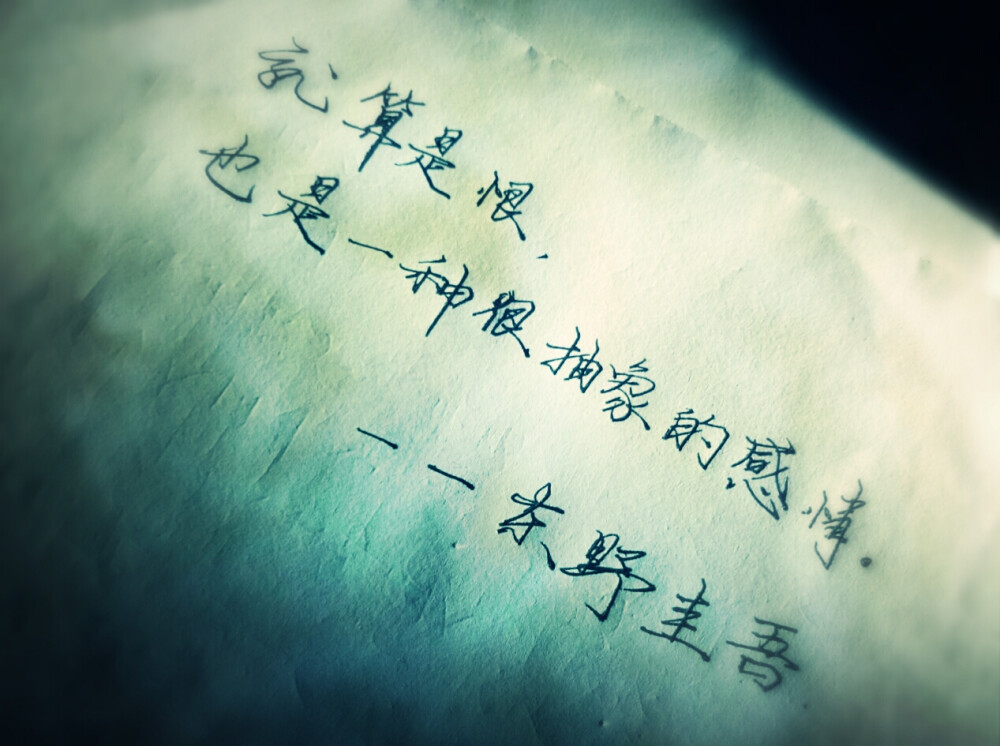 就算是恨.
也是一种很抽象的感情.
——东野圭吾